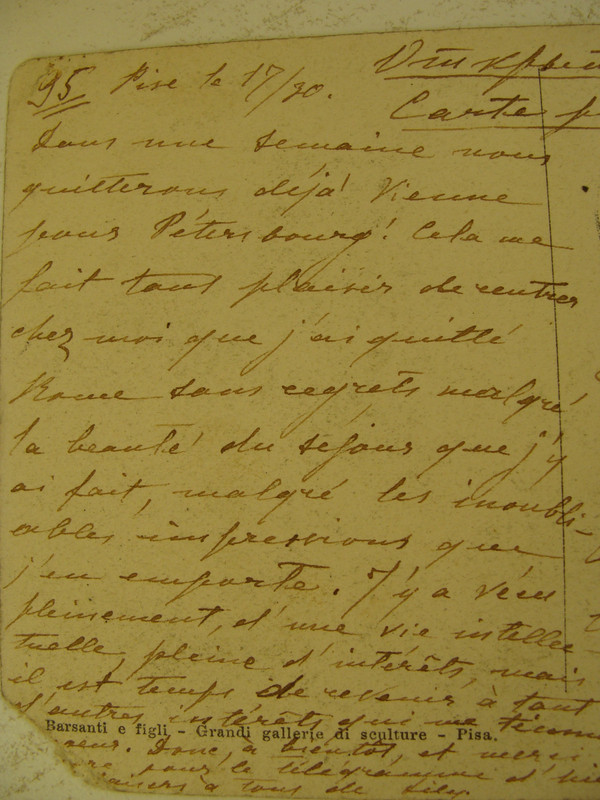 95 Pise le 17/30.
Carte
Dans une semaine nous
quitterons déjà Vienne
pour Pétersbourg! Cela me
fait tant plaisir de rentrer
chez moi que j'ai quitté
Rome sans regrets malgré
la beauté du séjour que j'y
ai fait, malgré les inoubli-
ables impressions que
j'en emporte. J'y a vécu
pleinement, d'une vie intellec-
tuelle, pleine d'intérêts, mais
il est temps de revenir à tant
d'autres intérêts qui me
Barsanti e figli - Grandi gallerie di sculture - Pisa.
Donc, à bientôt, et merci
pour le télégramme et
baisers à tous de